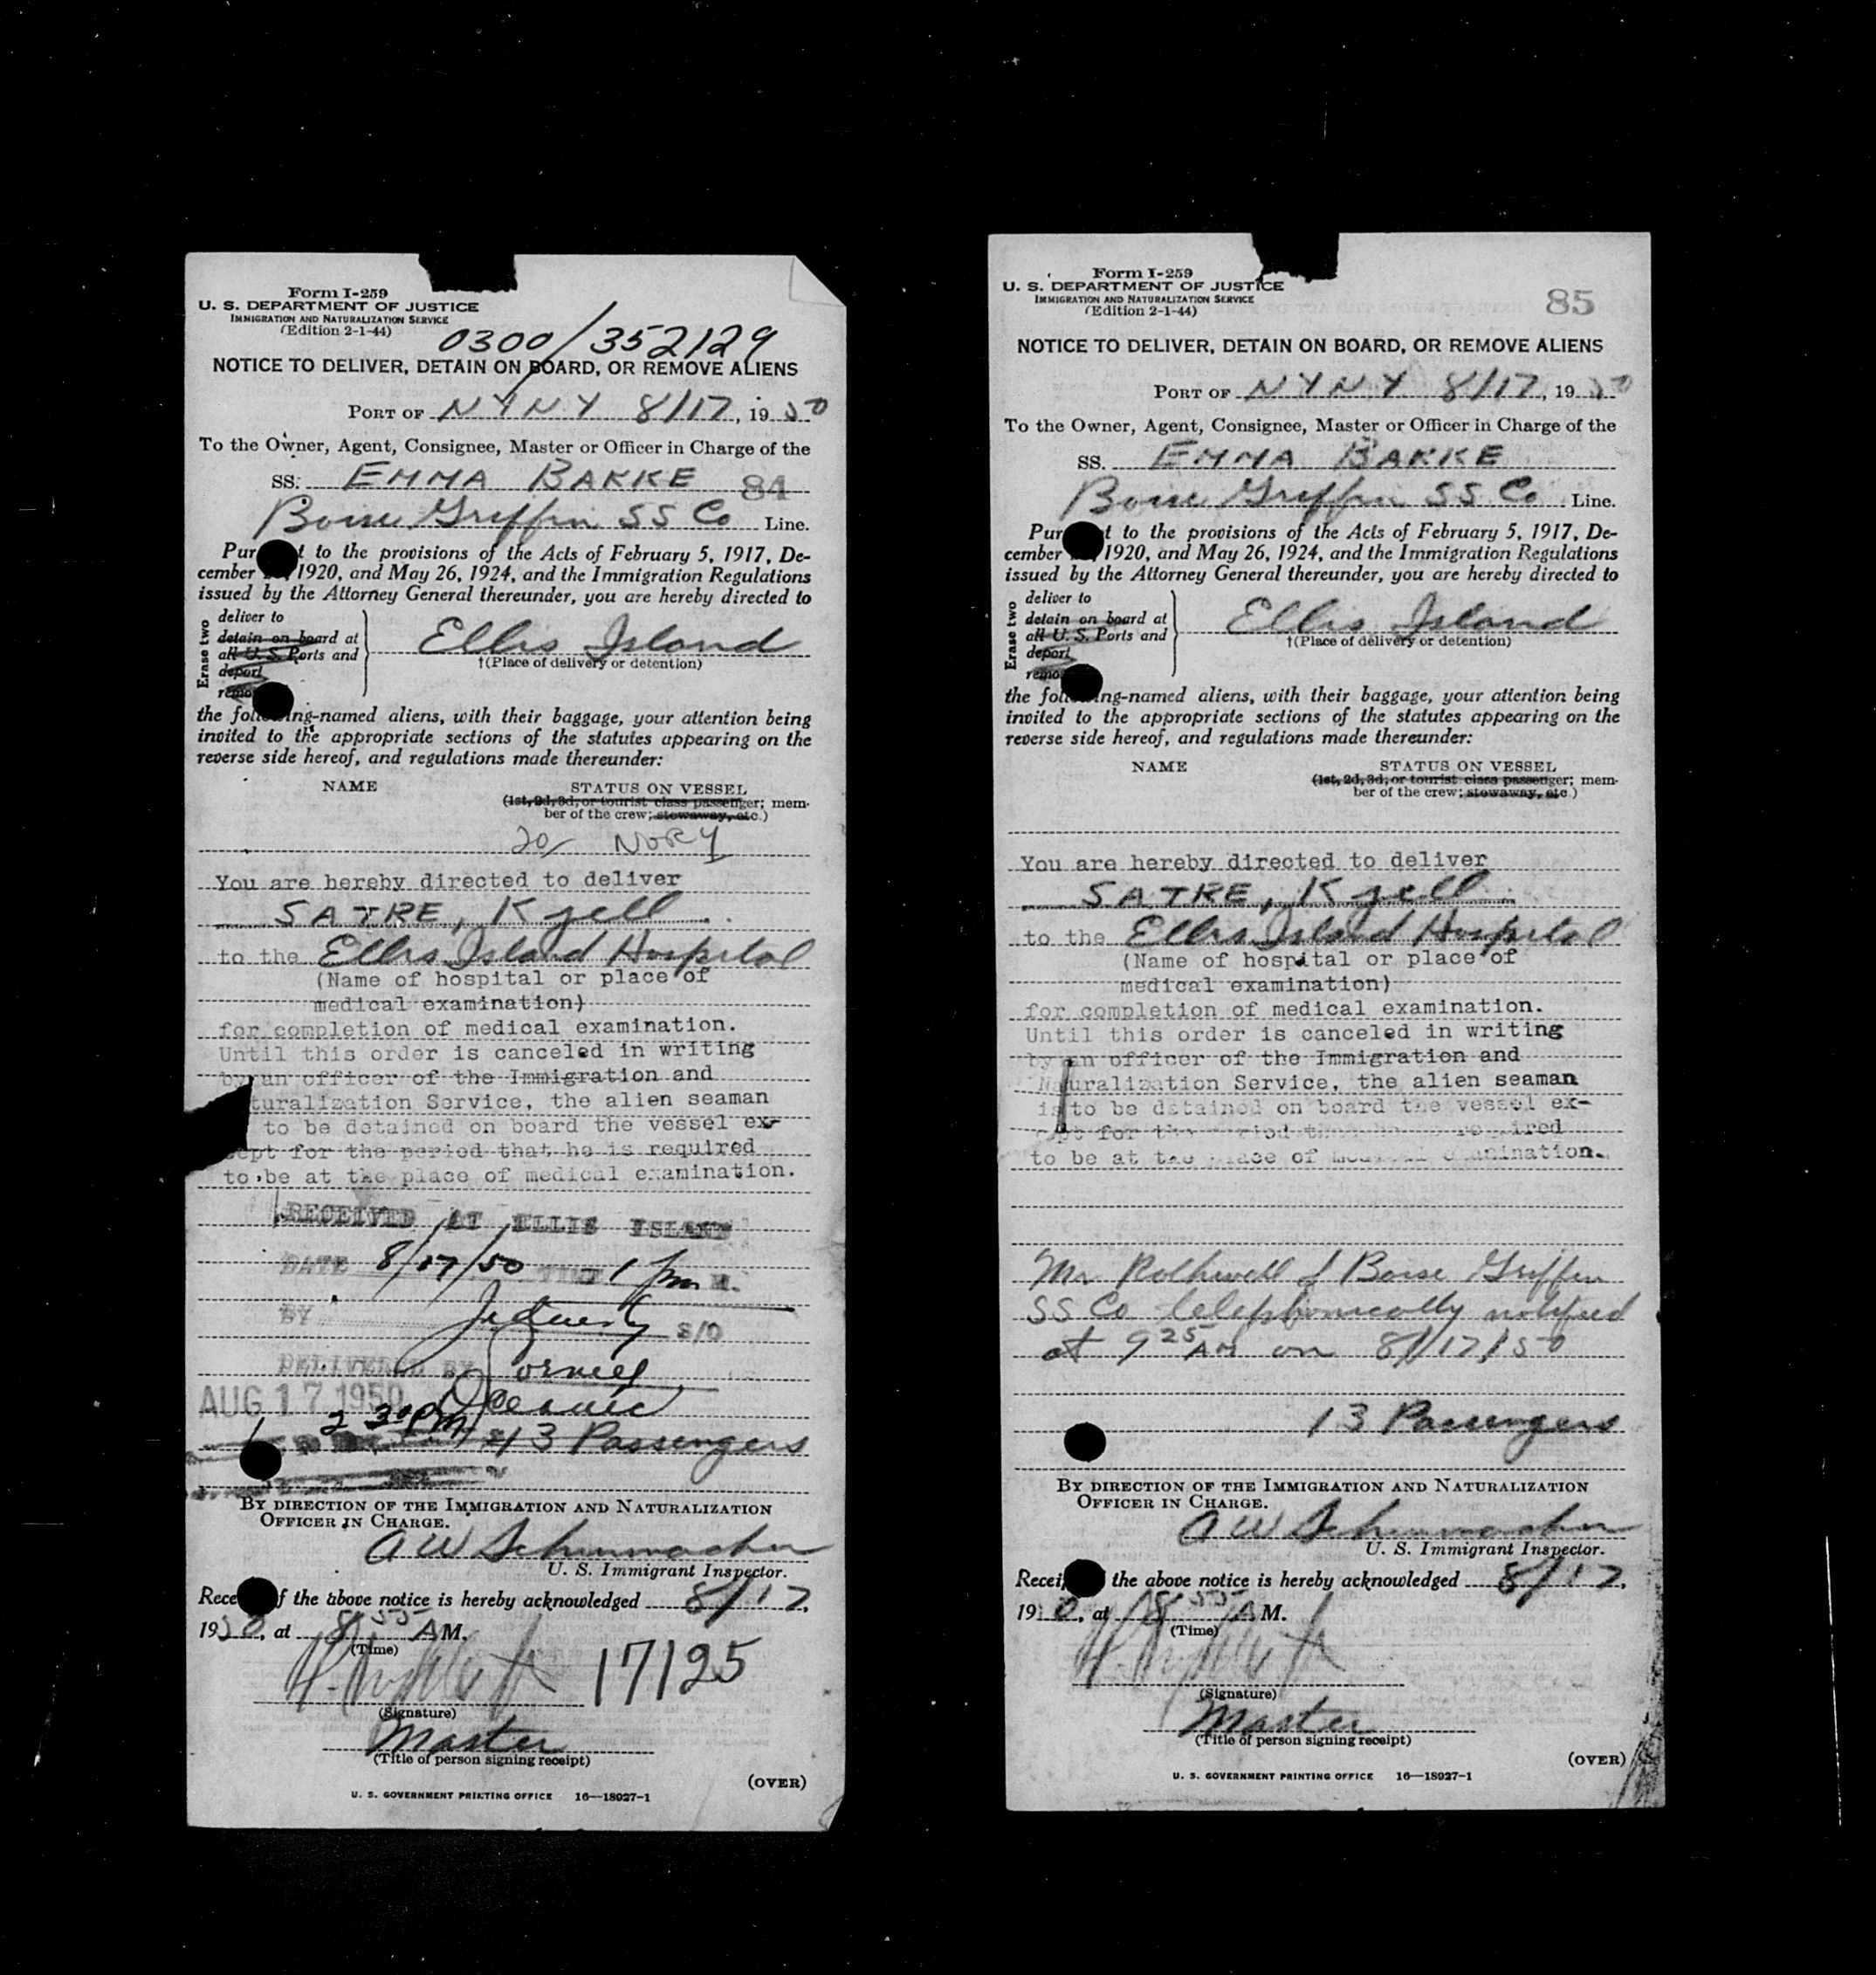 Form I-259
U. S. DEPARTMENT OF JUSTICE
IMMIGRATION AND NATURALIZATION SERVICE
(Edition 2-1-44)
0300/352129
NOTICE TO DELIVER, DETAIN ON BOARD, OR REMOVE ALIENS
PORT OF NYNY 8/17, 1950
To the Owner, Agent, Consignee, Master or Officer in Charge of the
SS. EMMA BAKKE 84
Boise Griffin SS Co Line.
Pur t to the provisions of the Acts of February 5, 1917, De-
cember 1920, and May 26, 1924, and the Immigration Regulations
issued by the Attorney General thereunder, you are hereby directed to
Erase two
deliver to
detain on board at
all U. S. Ports and
deport
remo
Ellis Island
†(Place of delivery or detention)
the following-named aliens, with their baggage, your attention being
invited to the appropriate sections of the statutes appearing on the
reverse side hereof, and regulations made thereunder:
NAME STATUS ON VESSEL
(1st, 2d, 3d, or tourist class passenger; mem-
ber of the crew; stowaway, etc.)
20/ NORY
You are hereby directed to deliver
SATRE, Kjell
to the Ellis Island Hospital
(Name of hospital or place of
medical examination)
for completion of medical examination.
Until this order is canceled in writing
by an officer of the Immigration and
turalization Service, the alien seaman
to be detained on board the vessel ex-
cept for the period that he is required
to be at the place of medical examination.
RECEIVED AT ELLIS ISLAND
DATE 8/17/50 TIME 1 pm M.
BY S/O
DELIVERED BY
AUG 17 1950
2 30 PM 13 Passengers
BY DIRECTION OF THE IMMIGRATION AND NATURALIZATION
OFFICER IN CHARGE.
A W Schumacher
U. S. Immigrant Inspector.
Rece f the above notice is hereby acknowledged 8/17,
1950, at 8 55 AM.
(Time)
17125
(Signature)
Master
(Title of person signing receipt)
(OVER)
U. S. GOVERNMENT PRINTING OFFICE 16—18027-1
Form I-259
U. S. DEPARTMENT OF JUSTICE
IMMIGRATION AND NATURALIZATION SERVICE
(Edition 2-1-44)
85
NOTICE TO DELIVER, DETAIN ON BOARD, OR REMOVE ALIENS
PORT OF NYNY 8/17, 1950
To the Owner, Agent, Consignee, Master or Officer in Charge of the
SS. EMMA BAKKE
Boise Griffin SS Co Line.
Pur t to the provisions of the Acts of February 5, 1917, De-
cember 1920, and May 26, 1924, and the Immigration Regulations
issued by the Attorney General thereunder, you are hereby directed to
Erase two
deliver to
detain on board at
all U. S. Ports and
deport
remo
Ellis Island
†(Place of delivery or detention)
the following-named aliens, with their baggage, your attention being
invited to the appropriate sections of the statutes appearing on the
reverse side hereof, and regulations made thereunder:
NAME STATUS ON VESSEL
(1st, 2d, 3d, or tourist class passenger; mem-
ber of the crew; stowaway, etc.)
You are hereby directed to deliver
SATRE, Kjell
to the Ellis Island Hospital
(Name of hospital or place of
medical examination)
for completion of medical examination.
Until this order is canceled in writing
by an officer of the Immigration and
Naturalization Service, the alien seaman
is to be detained on board the vessel ex-
cept for the period that he is required
to be at the place of medical examination.
Mr Rothwell of Boise Griffin
SS Co telephonically notified
at 9 25 AM on 8/17/50
13 Passengers
BY DIRECTION OF THE IMMIGRATION AND NATURALIZATION
OFFICER IN CHARGE.
A W Schumacher
U. S. Immigrant Inspector.
Recei the above notice is hereby acknowledged 8/17,
1950, at 8 55 AM.
(Time)
(Signature)
Master
(Title of person signing receipt)
(OVER)
U. S. GOVERNMENT PRINTING OFFICE 16—18027-1